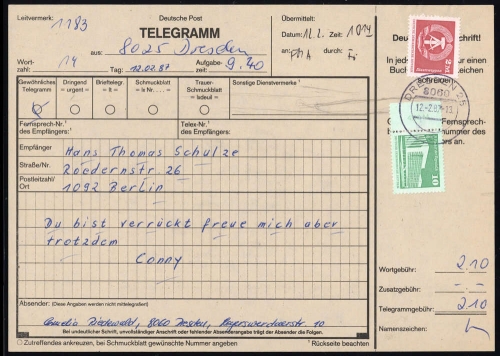 Leitvermerk:
1183
Deutsche Post
TELEGRAMM
aus: 8025 Dresden
Übermittelt:
Datum: 12.2. Zeit: 1014
an: durch:
Wort-
zahl: 14 Tag: 12.02.87 Aufgabe-
zeit: 9.40
Gewöhnliches
Telegramm
Dringend
= urgent =
Brieftelegr.
= lt =
Schmuckblatt
= lx Nr. ... =
Trauer-
Schmuckblatt
= lxdeuil =
Sonstige Dienstvermerke
Fernsprech-Nr.
des Empfängers:
Telex-Nr.
des Empfängers:
Empfänger Hans Thomas Schulze
Straße/Nr. Roedernstr. 26
Postleitzahl/
Ort 1092 Berlin
Du bist verrückt freue mich aber
trotzdem
Conny
Absender: (Diese Angaben werden nicht mittelegrafiert)
8060 Dresden, 10
Bei undeutlicher Schrift, unvollständiger Anschrift oder fehlender Absenderangabe trägt der Absender die Folgen.
Zutreffendes ankreuzen, bei Schmuckblatt gewünschte Nummer angeben
¹ Rückseite beachten
schrift!
In jede
Buch
schreiben
DRESDEN 25
8060
12.-2.87-13
Fernsprech-
nummer des
rs an.
DDR
10
Wortgebühr: 2.10
Zusatzgebühr: -.-
Telegrammgebühr: 2.10
Namenszeichen: